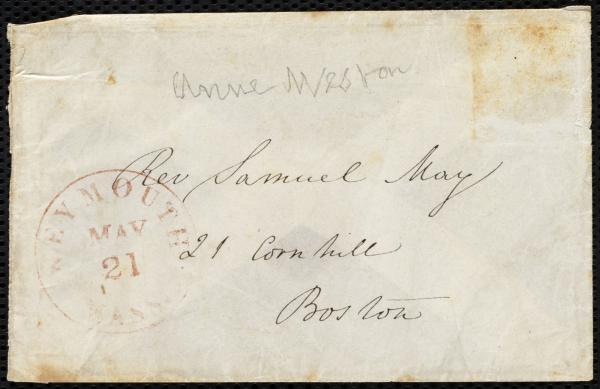 Anne Weston
Rev Samuel May
21 Cornhill
Boston
WEYMOUTH
MAY
21
MASS